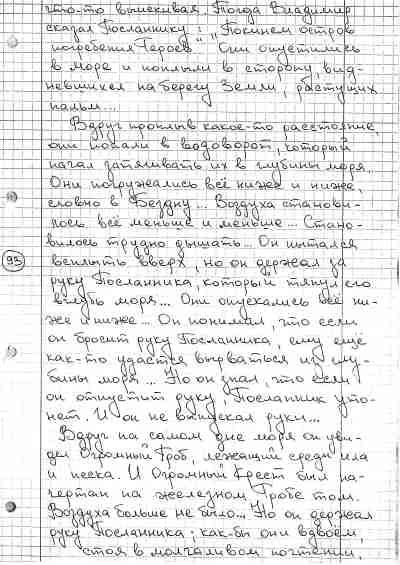 что-то выискивая. Тогда Владимир
сказал Посланнику: "Покинем остров
погребения Героев". Они опустились
в море и поплыли в сторону, вид-
невшихся на берегу Земли, растущих
пальм...
Вдруг проплыв какое-то расстояние,
они попали в водоворот, который
начал затягивать их в глубины моря.
Они погружались всё ниже и ниже,
словно в Бездну... Воздуха станови-
лось всё меньше и меньше... Стано-
вилось трудно дышать... Он пытался
всплыть вверх, но он держал за
руку Посланника, который тянул его
вглубь моря... Они опускались всё ни-
же и ниже... Он понимал, что если
он бросит руку Посланника, ему ещё
как-то удастся вырваться из глу-
бины моря... Но он знал, что если
он отпустит руку, Посланник уто-
нет. И он не выпускал руки...
Вдруг на самом дне моря он уви-
дел Огромный Гроб, лежащий среди ила
и песка. И Огромный Крест был на-
чертан на железном Гробе том.
Воздуха больше не было... Но он держал
руку Посланника; как-бы они вдвоём,
стоя в молчаливом почтении,
93